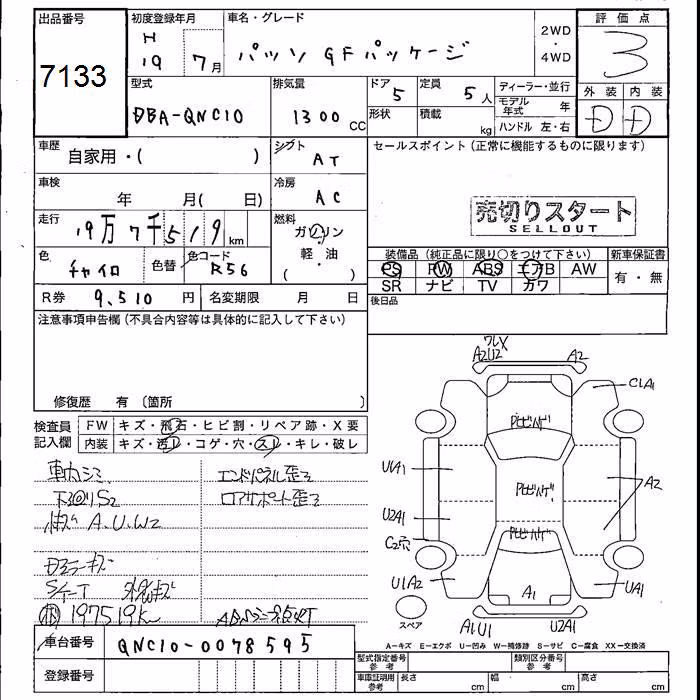 出品番号
7133
初度登録年月
H
19 7月
車名・グレード
パッソ GFパッケージ
2WD
・
4WD
評価点
3
型式
DBA-QNC10
排気量
1300cc
ドア
5
定員
5人
ディーラー・並行
モデル年式 年
形状
積載 kg
ハンドル 左・右
外装 内装
D D
車歴
自家用・( )
シフト
AT
セールスポイント(正常に機能するものに限ります)
車検
年 月( 日)
冷房
AC
売切りスタート
SELLOUT
走行
19万7千519km
燃料
ガソリン
軽・油
( )
色
チャイロ
色替
色コード
R56
装備品(純正品に限り○をつけて下さい)
新車保証書
PS PW ABS エアB AW
SR ナビ TV カワ
有・無
R券 9,510円
名変期限 月 日
後日品
注意事項申告欄(不具合内容等は具体的に記入して下さい)
修復歴 有(箇所 )
検査員
記入欄
FW キズ・飛石・ヒビ割・リペア跡・X要
内装 キズ・汚レ・コゲ・穴・スレ・キレ・破レ
エンドパネル歪ミ
ロアサポート歪ミ
A.U.W2
197519km
ワレX
A2U2
A2
CIA1
U1A1
A2
U2A1
C2穴
U1A2
UA1
A1
A1U1
U2A1
スペア
A-キズ E-エクボ U-凹み W-補修跡 S-サビ C-腐食 XX-交換済
車台番号 QNC10-0078595
登録番号
型式指定番号
参考
類別区分番号
参考
車庫証明用
参考
長さ cm
幅 cm
高さ cm